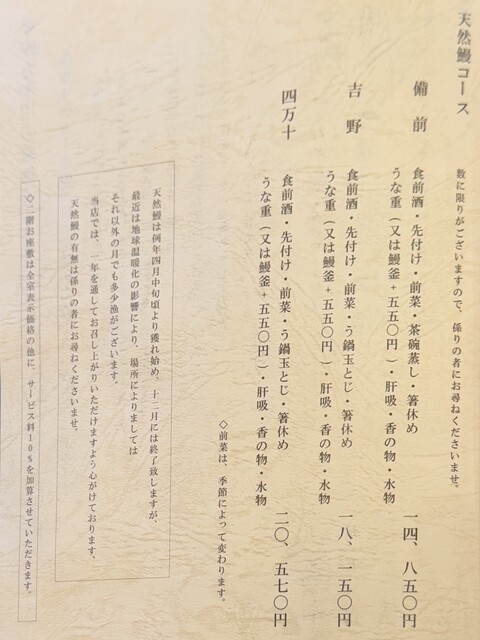 天然鰻コース
数に限りがございますので、係りの者にお尋ねくださいませ。
備前
食前酒・先付け・前菜・茶碗蒸し・箸休め
うな重(又は鰻釜+五五〇円)・肝吸・香の物・水物
一四、八五〇円
吉野
食前酒・先付け・前菜・う鍋玉とじ・箸休め
うな重(又は鰻釜+五五〇円)・肝吸・香の物・水物
一八、一五〇円
四万十
食前酒・先付け・前菜・う鍋玉とじ・箸休め
うな重(又は鰻釜+五五〇円)・肝吸・香の物・水物
二〇、五七〇円
◇前菜は、季節によって変わります。
天然鰻は例年四月中旬頃より獲れ始め、十二月には終了致しますが、
最近は地球温暖化の影響により、場所によりましては
それ以外の月でも多少漁がございます。
当店では、一年を通してお召し上がりいただけますよう心がけております。
天然鰻の有無は係りの者にお尋ねくださいませ。
◇二階お座敷は全室表示価格の他に、サービス料10%を加算させていただきます。